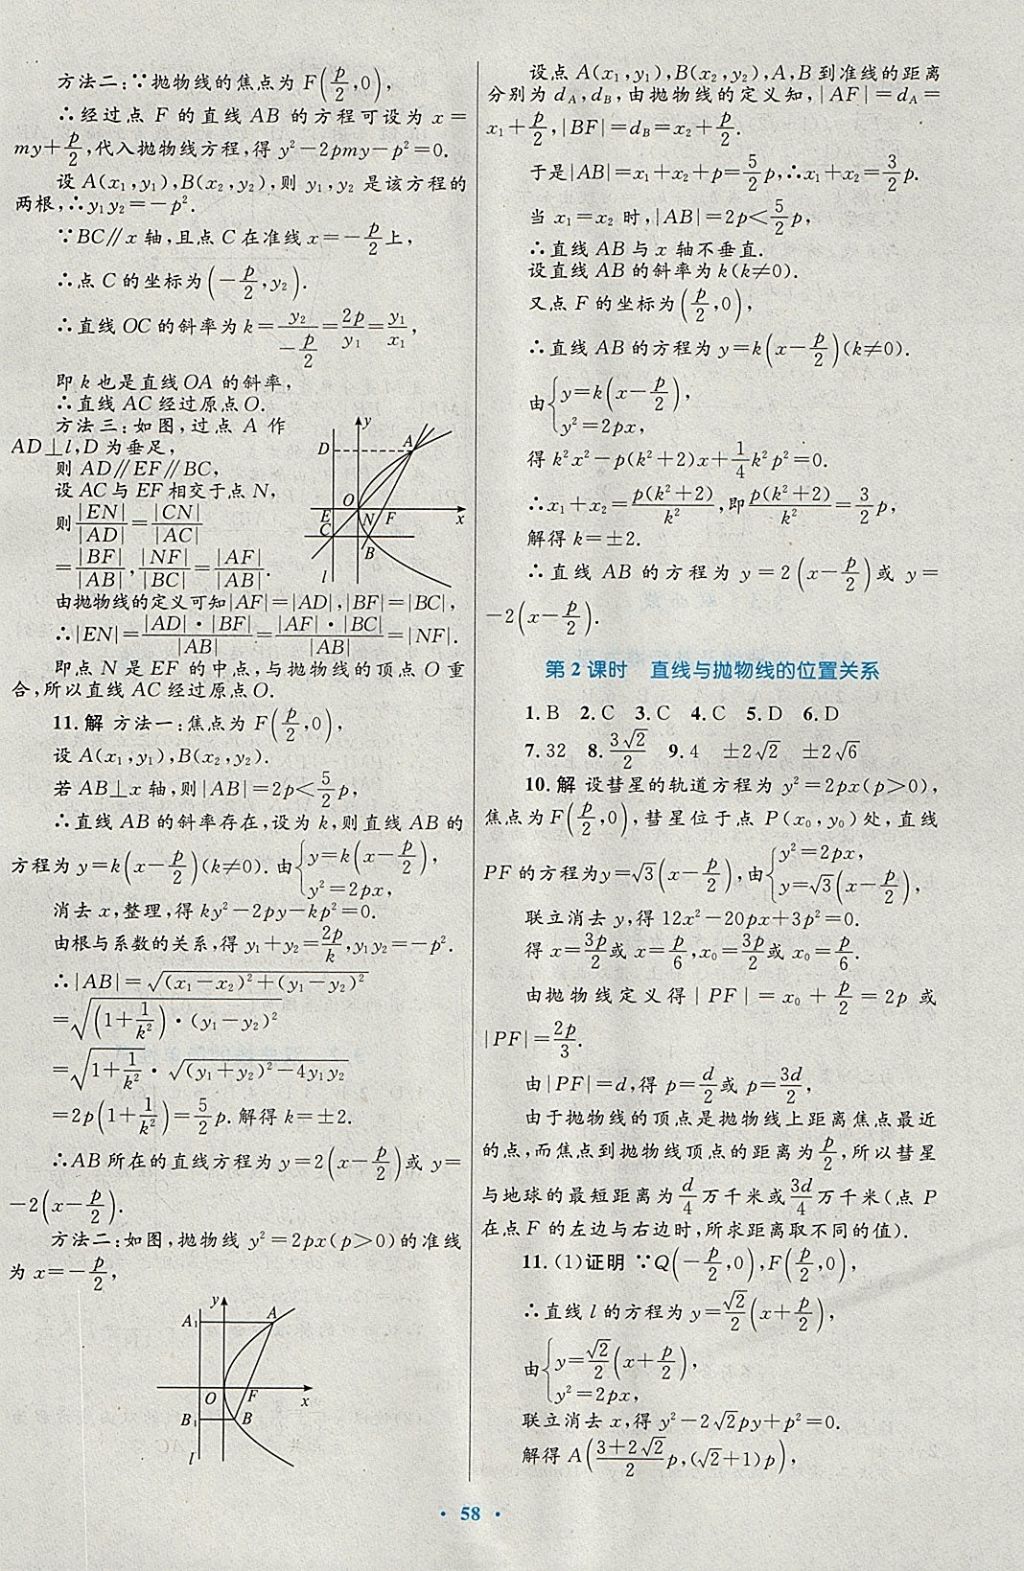 方法二:∵抛物线的焦点为 F(p/2,0),
∴经过点 F 的直线 AB 的方程可设为 x=
my+p/2,代入抛物线方程,得 y²-2pmy-p²=0.
设 A(x₁,y₁),B(x₂,y₂),则 y₁,y₂ 是该方程的
两根,∴y₁y₂=-p².
∵BC∥x 轴,且点 C 在准线 x=-p/2上,
∴点 C 的坐标为(-p/2,y₂).
∴直线 OC 的斜率为 k=y₂/(-p/2)=2p/y₁=y₁/x₁,
即 k 也是直线 OA 的斜率,
∴直线 AC 经过原点 O.
方法三:如图,过点 A 作
AD⊥l,D 为垂足,
则 AD∥EF∥BC,
设 AC 与 EF 相交于点 N,
则|EN|/|AD|=|CN|/|AC|
=|BF|/|AB|,|NF|/|BC|=|AF|/|AB|.
y
D
A
O
E
N
F
x
C
B
l
由抛物线的定义可知|AF|=|AD|,|BF|=|BC|,
∴|EN|=|AD|·|BF|/|AB|=|AF|·|BC|/|AB|=|NF|.
即点 N 是 EF 的中点,与抛物线的顶点 O 重
合,所以直线 AC 经过原点 O.
11.解 方法一:焦点为 F(p/2,0),
设 A(x₁,y₁),B(x₂,y₂).
若 AB⊥x 轴,则|AB|=2p<5/2p,
∴直线 AB 的斜率存在,设为 k,则直线 AB 的
方程为 y=k(x-p/2)(k≠0).由{y=k(x-p/2),
y²=2px,
消去 x,整理,得 ky²-2py-kp²=0.
由根与系数的关系,得 y₁+y₂=2p/k,y₁y₂=-p².
∴|AB|=√((x₁-x₂)²+(y₁-y₂)²)
=√((1+1/k²)·(y₁-y₂)²)
=√(1+1/k²)·√((y₁+y₂)²-4y₁y₂)
=2p(1+1/k²)=5/2p.解得 k=±2.
∴AB 所在的直线方程为 y=2(x-p/2)或 y=
-2(x-p/2).
方法二:如图,抛物线 y²=2px(p>0)的准线
为 x=-p/2,
y
A₁
A
O
F
x
B₁
B
l
设点 A(x₁,y₁),B(x₂,y₂),A,B 到准线的距离
分别为 d_A,d_B,由抛物线的定义知,|AF|=d_A=
x₁+p/2,|BF|=d_B=x₂+p/2.
于是|AB|=x₁+x₂+p=5/2p,∴x₁+x₂=3/2p.
当 x₁=x₂ 时,|AB|=2p<5/2p,
∴直线 AB 与 x 轴不垂直.
设直线 AB 的斜率为 k(k≠0).
又点 F 的坐标为(p/2,0),
∴直线 AB 的方程为 y=k(x-p/2)(k≠0).
由{y=k(x-p/2),
y²=2px,
得 k²x²-p(k²+2)x+1/4k²p²=0.
∴x₁+x₂=p(k²+2)/k²,即p(k²+2)/k²=3/2p,
解得 k=±2.
∴直线 AB 的方程为 y=2(x-p/2)或 y=
-2(x-p/2).
第 2 课时 直线与抛物线的位置关系
1.B 2.C 3.C 4.C 5.D 6.D
7.32 8.3√2/2 9.4 ±2√2 ±2√6
10.解 设彗星的轨道方程为 y²=2px(p>0),
焦点为 F(p/2,0),彗星位于点 P(x₀,y₀)处,直线
PF 的方程为y=√3(x-p/2),由{y²=2px,
y=√3(x-p/2),
联立消去 y,得 12x²-20px+3p²=0.
得 x=3p/2或 x=p/6,x₀=3p/2或 x₀=p/6.
由抛物线定义得|PF|=x₀+p/2=2p 或
|PF|=2p/3.
由|PF|=d,得 p=d/2或 p=3d/2,
由于抛物线的顶点是抛物线上距离焦点最近
的点,而焦点到抛物线顶点的距离为p/2,所以彗星
与地球的最短距离为d/4万千米或3d/4万千米(点 P
在点 F 的左边与右边时,所求距离取不同的值).
11.(1)证明 ∵Q(-p/2,0),F(p/2,0),
∴直线 l 的方程为 y=√2/2(x+p/2),
由{y=√2/2(x+p/2),
y²=2px,
联立消去 x,得 y²-2√2py+p²=0.
解得 A((3+2√2)/2p,(√2+1)p),
· 58 ·